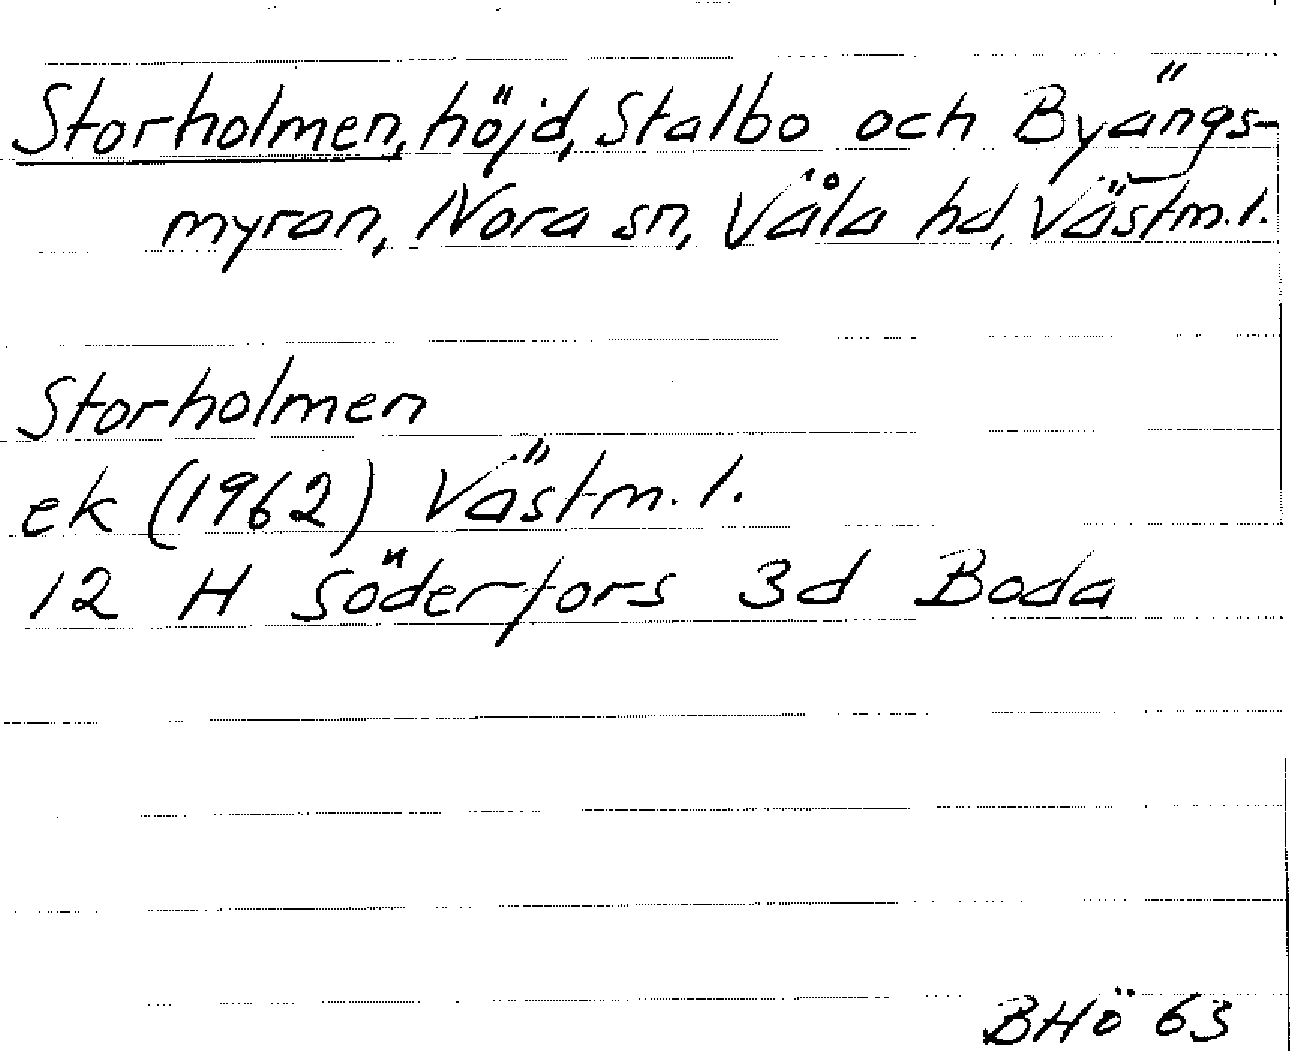 Storholmen, höjd, Stalbo och Byängs-
myran, Nora sn, Våla hd, Västm. l.
Storholmen
ek (1962) Västm. l.
12 H Söderfors 3d Boda
BHö 63